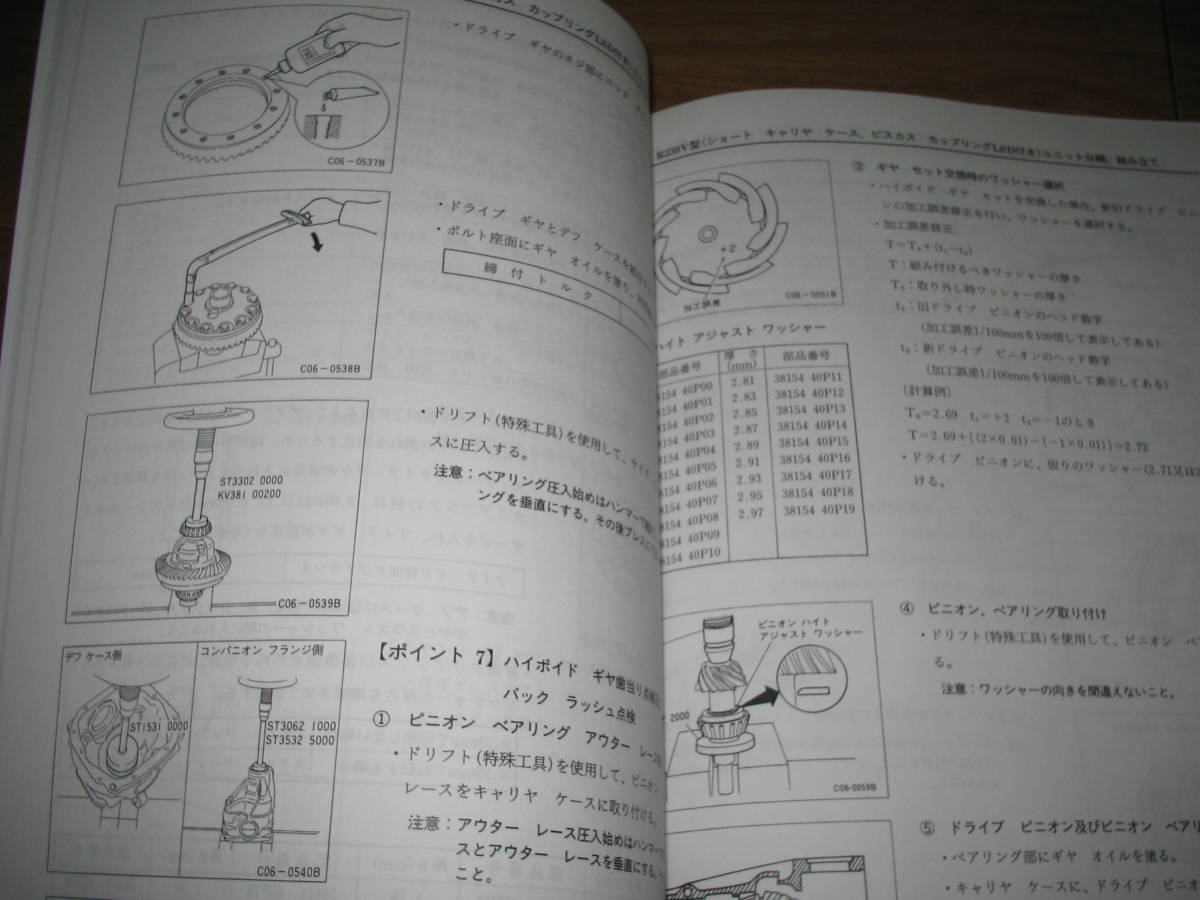 カップリングLSD付き
・ドライブ ギヤのネジ部にロック
C06-0537B
・ドライブ ギヤとデフ ケースを
・ボルト座面にギヤ オイルを塗り、
締付トルク
C06-0538B
・ドリフト(特殊工具)を使用して、サイド
スに圧入する。
注意：ベアリング圧入始めはハンマーで
ングを垂直にする。その後プレスに
ST3302 0000
KV381 00200
C06-0539B
デフ ケース側
コンパニオン フランジ側
ST1531 0000
ST3062 1000
ST3532 5000
C06-0540B
【ポイント 7】ハイポイド ギヤ歯当り点検
バック ラッシュ点検
① ピニオン ベアリング アウター レース
・ドリフト(特殊工具)を使用して、ピニオン
レースをキャリヤ ケースに取り付ける。
注意：アウター レース圧入始めはハンマー
スとアウター レースを垂直にする。
こと。
R230V型(ショート キャリヤ ケース、ビスカス カップリングLSD付き)ユニット分解、組み立て
+2
加工誤差
C06-0051B
ハイト アジャスト ワッシャー
部品番号 厚さ(mm) 部品番号
8154 40P00 2.81 38154 40P11
8154 40P01 2.83 38154 40P12
8154 40P02 2.85 38154 40P13
8154 40P03 2.87 38154 40P14
8154 40P04 2.89 38154 40P15
8154 40P05 2.91 38154 40P16
8154 40P06 2.93 38154 40P17
8154 40P07 2.95 38154 40P18
8154 40P08 2.97 38154 40P19
8154 40P09
8154 40P10
③ ギヤ セット交換時のワッシャー選択
・ハイポイド ギヤ セットを交換した場合、新旧ドライブ ピニ
ンの加工誤差修正を行い、ワッシャーを選択する。
・加工誤差修正
T=T₀+(t₁-t₂)
T：組み付けるべきワッシャーの厚さ
T₀：取り外し時ワッシャーの厚さ
t₁：旧ドライブ ピニオンのヘッド数字
(加工誤差1/100mmを100倍して表示してある)
t₂：新ドライブ ピニオンのヘッド数字
(加工誤差1/100mmを100倍して表示してある)
(計算例)
T₀=2.69 t₁=+2 t₂=-1のとき
T=2.69+{(2×0.01)-(-1×0.01)}=2.72
・ドライブ ピニオンに、仮りのワッシャー(2.71又は2
ける。
ピニオン ハイト
アジャスト ワッシャー
2000
C06-0059B
④ ピニオン、ベアリング取り付け
・ドリフト(特殊工具)を使用して、ピニオン ベ
る。
注意：ワッシャーの向きを間違えないこと。
⑤ ドライブ ピニオン及びピニオン ベアリ
・ベアリング部にギヤ オイルを塗る。
・キャリヤ ケースに、ドライブ ピニオ